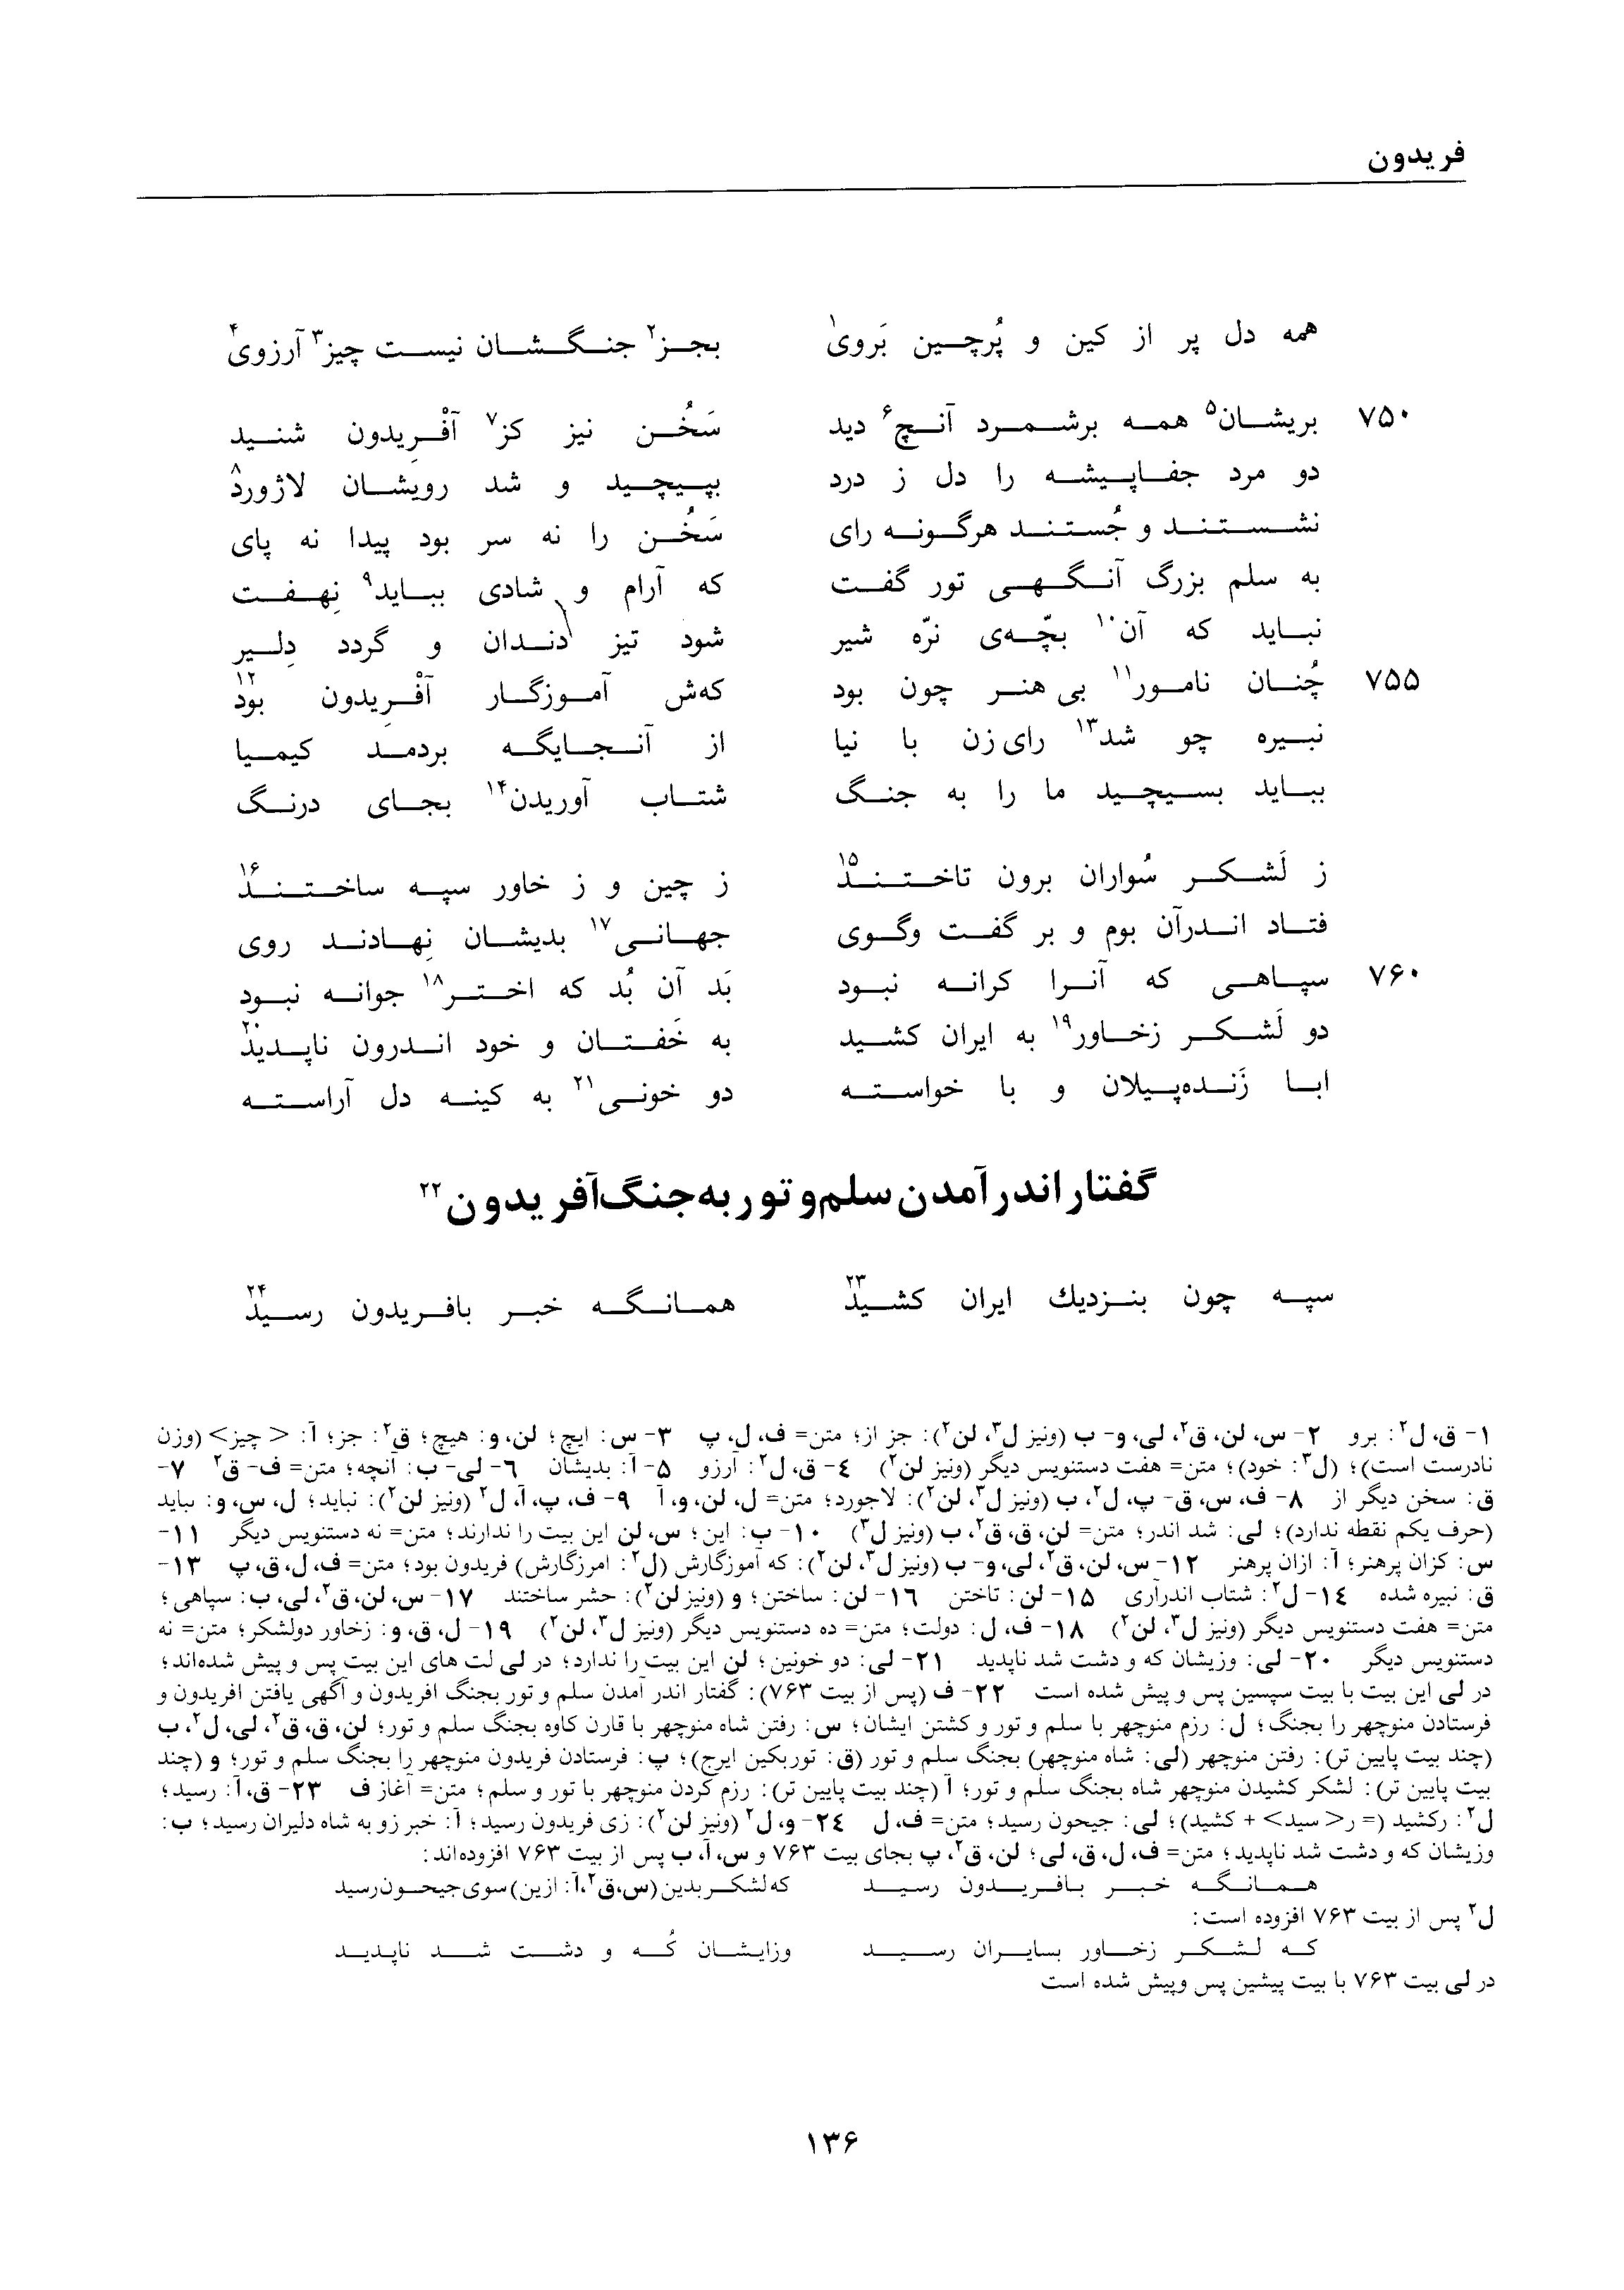 فریدون
همه دل پر از کین و پُرچین بَروی۱ بجز۲ جنگشان نیست چیز۳ آرزوی۴
۷۵۰ بریشان۵ همه برشمرد آنچ۶ دید سَخُن نیز کز۷ آفْرِیدون شنید
دو مرد جفاپیشه را دل ز درد بپیچید و شد رویشان لاژورد۸
نشستند و جُستند هرگونه رای سَخُن را نه سر بود پیدا نه پای
به سلم بزرگ آنگهی تور گفت که آرام و شادی بباید۹ نِهفت
نباید که آن۱۰ بچّه‌ی نرّه شیر شود تیز دندان و گردد دِلیر
۷۵۵ چُنان نامور۱۱ بی هنر چون بود که‌ش آموزگار آفْرِیدون بود۱۲
نبیره چو شد۱۳ رای زن با نیا از آنجایگه بردمد کیمیا
بباید بسیچید ما را به جنگ شتاب آوریدن۱۴ بجای درنگ
ز لَشکر سُواران برون تاختند۱۵ ز چین و ز خاور سپه ساختند۱۶
فتاد اندرآن بوم و بر گفت وگوی جهانی۱۷ بدیشان نِهادند روی
۷۶۰ سپاهی که آنرا کرانه نبود بَد آن بُد که اختر۱۸ جوانه نبود
دو لَشکر زخاور۱۹ به ایران کشید به خَفتان و خود اندرون ناپدید۲۰
ابا زَنده‌پیلان و با خواسته دو خونی۲۱ به کینه دل آراسته
گفتار اندر آمدن سلم و تور به جنگ آفریدون۲۲
سپه چون بنزدیك ایران کشید۲۳ همانگه خبر بافریدون رسید۲۴
۱- ق، ل۲: برو ۲- س، لن، ق۲، لی، و- ب (ونیز ل۳، لن۲): جز از؛ متن= ف، ل، پ ۳- س: ایچ؛ لن، و: هیچ؛ ق۲: جز؛ آ: < چیز> (وزن
نادرست است)؛ (ل۳: خود)؛ متن= هفت دستنویس دیگر (ونیز لن۲) ۴- ق، ل۲: آرزو ۵- آ: بدیشان ۶- لی- ب: آنچه؛ متن= ف- ق۲ ۷-
ق: سخن دیگر از ۸- ف، س، ق- پ، ل۲، ب (ونیز ل۳، لن۲): لاجورد؛ متن= ل، لن، و، آ ۹- ف، پ، آ، ل۲ (ونیز لن۲): نباید؛ ل، س، و: ىباید
(حرف یکم نقطه ندارد)؛ لی: شد اندر؛ متن= لن، ق، ق۲، ب (ونیز ل۳) ۱۰- ب: این؛ س، لن این بیت را ندارند؛ متن= نه دستنویس دیگر ۱۱-
س: کزان پرهنر؛ آ: ازان پرهنر ۱۲- س، لن، ق۲، لی، و- ب (ونیز ل۳، لن۲): که آموزگارش (ل۲: امرزگارش) فریدون بود؛ متن= ف، ل، ق، پ ۱۳-
ق: نبیره شده ۱۴- ل۲: شتاب اندرآری ۱۵- لن: تاختن ۱۶- لن: ساختن؛ و (ونیز لن۲): حشر ساختند ۱۷- س، لن، ق۲، لی، ب: سپاهی؛
متن= هفت دستنویس دیگر (ونیز ل۳، لن۲) ۱۸- ف، ل: دولت؛ متن= ده دستنویس دیگر (ونیز ل۳، لن۲) ۱۹- ل، ق، و: زخاور دولشکر؛ متن= نه
دستنویس دیگر ۲۰- لی: وزیشان که و دشت شد ناپدید ۲۱- لی: دو خونین؛ لن این بیت را ندارد؛ در لی لت های این بیت پس و پیش شده‌اند؛
در لی این بیت با بیت سپسین پس و پیش شده است ۲۲- ف (پس از بیت ۷۶۳): گفتار اندر آمدن سلم و تور بجنگ افریدون و آگهی یافتن افریدون و
فرستادن منوچهر را بجنگ؛ ل: رزم منوچهر با سلم و تور و کشتن ایشان؛ س: رفتن شاه منوچهر با قارن کاوه بجنگ سلم و تور؛ لن، ق، ق۲، لی، ل۲، ب
(چند بیت پایین تر): رفتن منوچهر (لی: شاه منوچهر) بجنگ سلم و تور (ق: توربکین ایرج)؛ پ: فرستادن فریدون منوچهر را بجنگ سلم و تور؛ و (چند
بیت پایین تر): لشکر کشیدن منوچهر شاه بجنگ سلم و تور؛ آ (چند بیت پایین تر): رزم کردن منوچهر با تور و سلم؛ متن= آغاز ف ۲۳- ق، آ: رسید؛
ل۲: رکشید (= ر< سید> + کشید)؛ لی: جیحون رسید؛ متن= ف، ل ۲۴- و، ل۲ (ونیز لن۲): زی فریدون رسید؛ آ: خبر زو به شاه دلیران رسید؛ ب:
وزیشان که و دشت شد ناپدید؛ متن= ف، ل، ق، لی؛ لن، ق۲، پ بجای بیت ۷۶۳ و س، آ، ب پس از بیت ۷۶۳ افزوده‌اند:
همانگه خبر بافریدون رسید که لشکر بدین (س، ق۲، آ: ازین) سوی جیحون رسید
ل۲ پس از بیت ۷۶۳ افزوده است:
که لشکر زخاور بسایران رسید وزایشان کُه و دشت شد ناپدید
در لی بیت ۷۶۳ با بیت پیشین پس وپیش شده است
۱۳۶